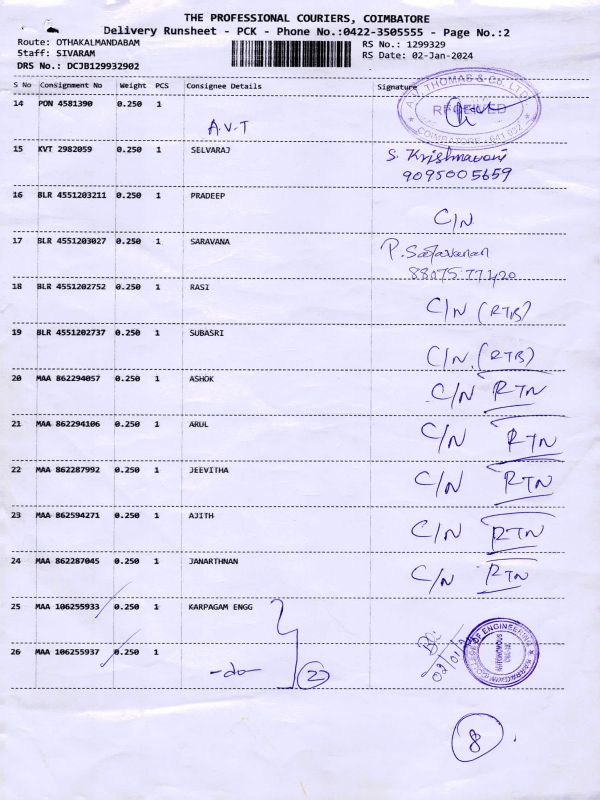 THE PROFESSIONAL COURIERS, COIMBATORE
Delivery Runsheet - PCK - Phone No.:0422-3505555 - Page No.:2
Route: OTHAKALMANDABAM RS No.: 1299329
Staff: SIVARAM RS Date: 02-Jan-2024
DRS No.: DCJB129932902
S No Consignment No Weight PCS Consignee Details Signature
14 PON 4581390 0.250 1
A.V.T
THOMAS & CO. LTD.
RECEIVED
COIMBATORE - 641 032
15 KVT 2982059 0.250 1 SELVARAJ S. Krishnaveni
9095005659
16 BLR 4551203211 0.250 1 PRADEEP
C/N
17 BLR 4551203027 0.250 1 SARAVANA P. Saravanan
88075 77420
18 BLR 4551202752 0.250 1 RASI
C/N (RTB)
19 BLR 4551202737 0.250 1 SUBASRI
C/N. (RTB)
20 MAA 862294057 0.250 1 ASHOK C/N RTN
21 MAA 862294106 0.250 1 ARUL C/N RTN
22 MAA 862287992 0.250 1 JEEVITHA C/N RTN
23 MAA 862594271 0.250 1 AJITH C/N RTN
24 MAA 862287045 0.250 1 JANARTHNAN C/N RTN
25 MAA 106255933 0.250 1 KARPAGAM ENGG
COLLEGE OF ENGINEERING
AUTONOMOUS
26 MAA 106255937 0.250 1
-do- 2
8